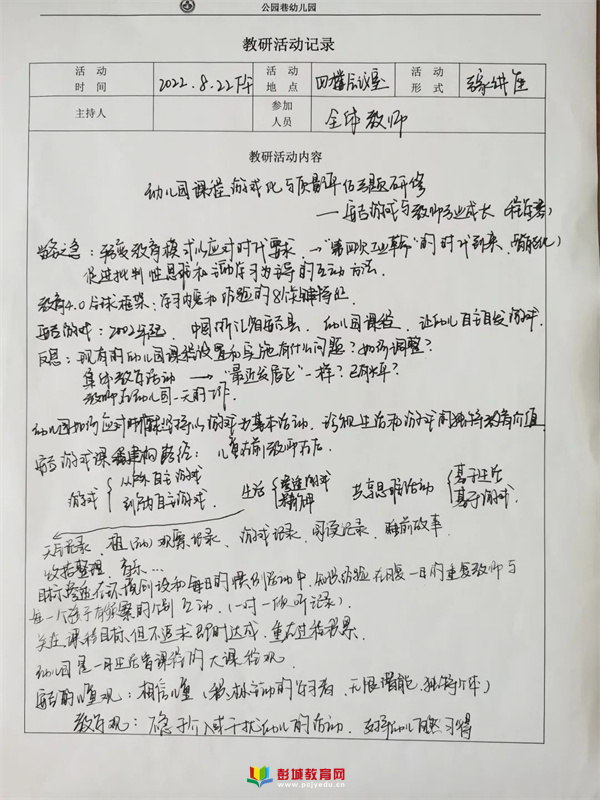 公园巷幼儿园
教研活动记录
活动时间 2022.8.22下午 活动地点 四楼会议室 活动形式 专家讲座
主持人 参加人员 全体教师
教研活动内容
幼儿园课程游戏化与质量评估专题研修
——安吉游戏与教师专业成长
当务之急：转变教育模式以应对时代要求，→"第四次工业革命"的时代到来
促进批判性思维和主动学习为导的互动方法.
教育4.0全球框架：学习内容和经验的8个关键特征
安吉游戏：2002年起 中国浙江省安吉县. 幼儿园课程 让幼儿自主自发游戏.
反思：现有的幼儿园课程设置和实施有什么问题？如何调整？
集体教学活动 → "最近发展区"一样？
教师在幼儿园一天的工作
幼儿园如何应对 坚持以游戏为基本活动，珍视生活和游戏的独特教育价值
安吉游戏课程建构路径：儿童在前教师在后
游戏 { 从户外自主游戏 到室内自主游戏. 生活 共享思维活动 { 基于生活 基于游戏.
天气记录、植(动)观察记录、游戏记录、阅读记录、睡前故事
收拾整理 音乐…
目标渗透在环境创设和每日的惯例活动中, 在日复一日的重复教师与
每一个孩子有 的个别互动.(一对一倾听记录).
关注课程目标但不追求即时达成. 重在过程
幼儿园是一日生活皆课程的大课程观
安吉的儿童观：相信儿童 (积极主动的学习者, 无限潜能, 独特个体)
教育观： 介入或干扰幼儿的活动. 支持幼儿自然习得
彭城教育网
www.pcjyedu.cn